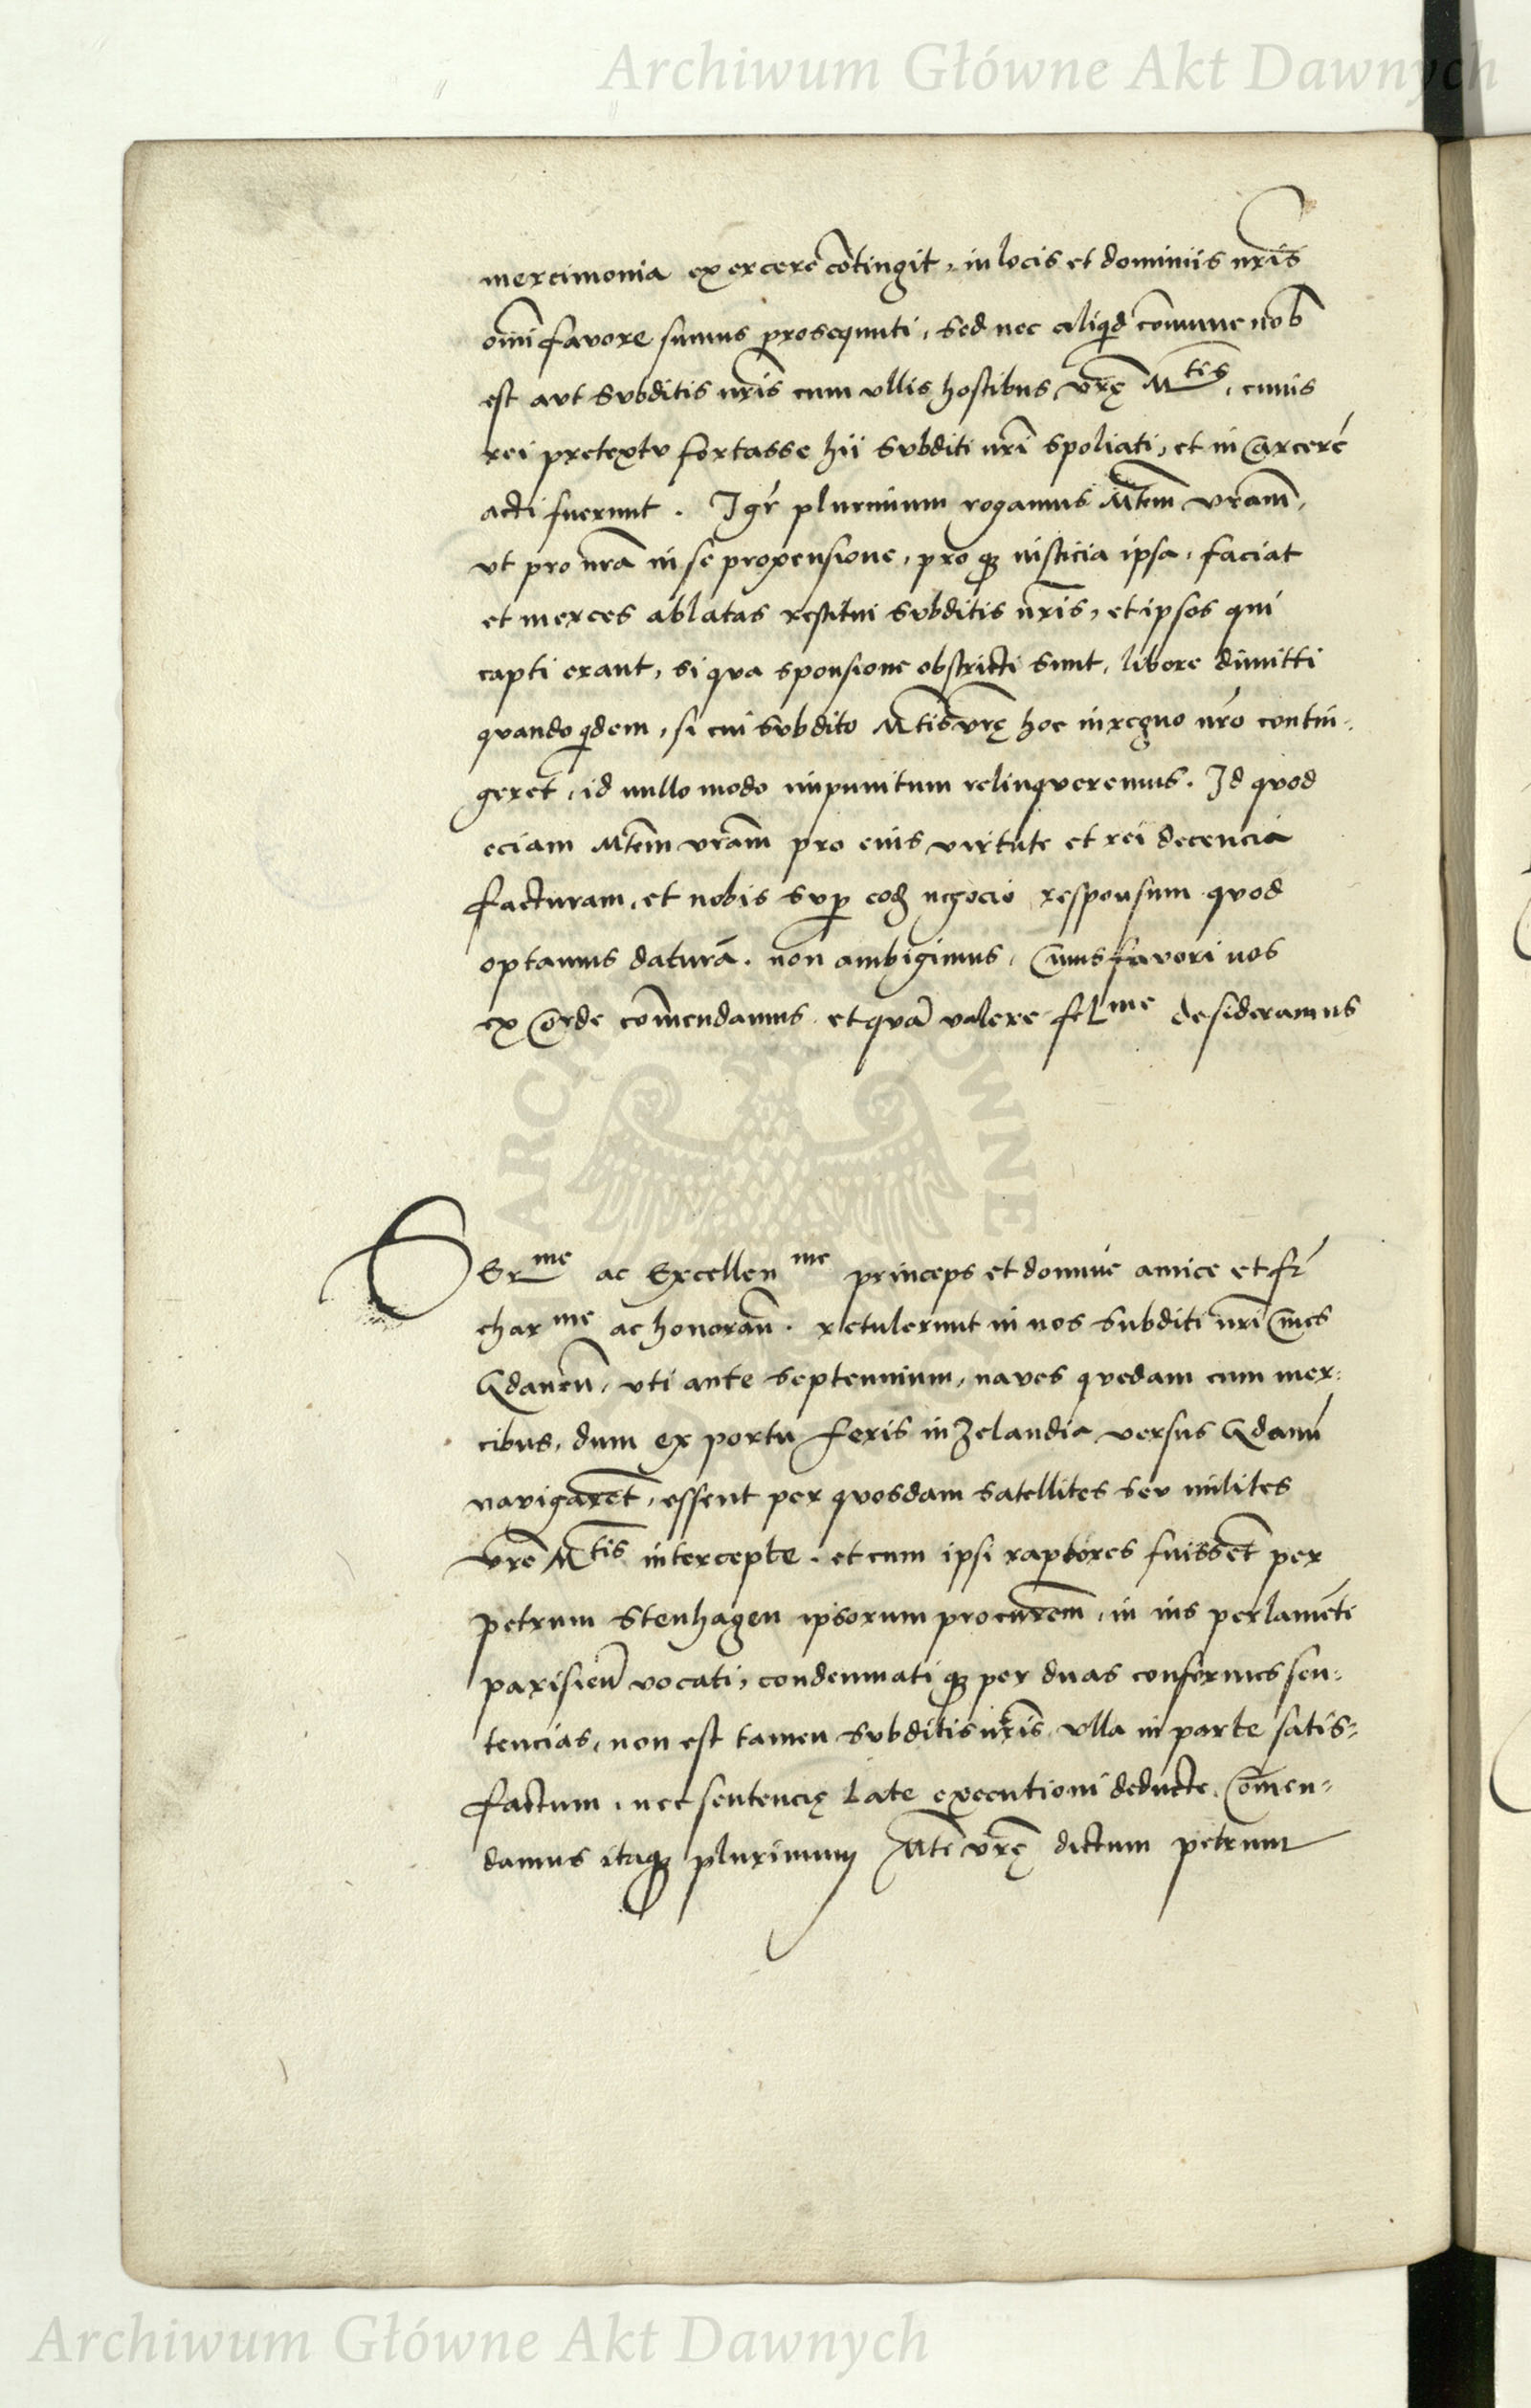 Archiwum Główne Akt Dawnych
mercimonia exercere cōtingit, in locis et dominiis nr̄is
om̄i favore sumus prosequuti, sed nec aliqd cōmune nob
est aut subditis nr̄is cum ullis hostibus vrę Mtis, cuius
rei pretextu fortasse hii subditi nr̄i spoliati, et in carcerē
acti fuerunt. Igr plurimum rogamus Mtem vram,
ut pro nrā in se propensione, pro q iusticia ipsa, faciat
et merces ablatas restitui subditis nr̄is, et ipsos qui
capti erant, si qua sponsione obstricti sunt, libere dimitti
quandoqdem, si cui subdito Mtis vrę hoc in regno nro contin-
geret, id nullo modo impunitum relinqueremus. Id quod
eciam Mtem vram pro eius virtute et rei decencia
facturam, et nobis sup eod negocio responsum quod
optamus daturā. non ambigimus, Cuius favori nos
ex corde com̄endamus et quā valere felme desideramus
ARCHI OWNE
Serme ac Excellenme princeps et domine amice et fr
charme ac honoran. retulerunt in nos subditi nr̄i Cives
Gdanen, uti ante septennium, naves quedam cum mer-
cibus, dum ex portu feris in Zelandia versus Gdanū
navigarēt, essent per quosdam satellites seu milites
vre Mtis intercepte. et cum ipsi raptores fuissēt per
petrum Stenhagen ipsorum procurem, in ius perlamēti
parisien vocati, condemnatiq per duas conformes sen-
tencias, non est tamen subditis nr̄is ulla in parte satis-
factum, nec sentencię late executioni deducte. Com̄en-
damus itaq plurimum Mti vrę dictum petrum
Archiwum Główne Akt Dawnych